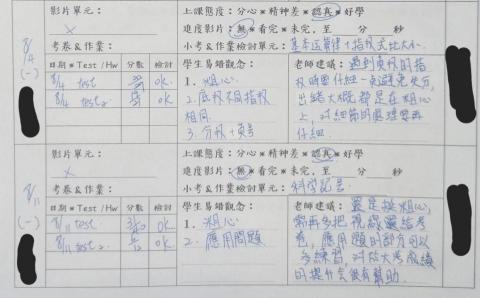 影片單元：
×
上課態度：分心＊精神差＊認真＊好學
進度影片：無＊看完＊未完，至 分 秒
考卷&作業：
小考&作業檢討單元：基本運算律+指數式比大小
8/4
(一)
日期＊Test / Hw 分數 檢討
8/4 test ok
8/4 test2 ok
學生易錯觀念：
1. 粗心
2. 底數不同指數
相同
3. 分數+負考
老師建議：遇到負數的指
數時要仔細一點避免失分，
出錯大概都是在粗心
上，對細節的處理要再
仔細
影片單元：
×
上課態度：分心＊精神差＊認真＊好學
進度影片：無＊看完＊未完，至 分 秒
考卷&作業：
小考&作業檢討單元：科學記號
8/11
(一)
日期＊Test / Hw 分數 檢討
8/11 test ok
8/11 test2 ok
學生易錯觀念：
1. 粗心
2. 應用問題
老師建議：還是挺粗心，
需再多把視線還給考
卷，應用題的部分可以
多練習，對於大考成績
的提升會很有幫助。